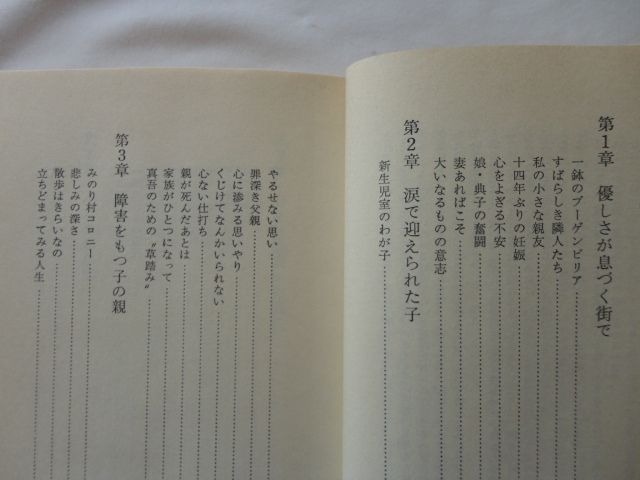 第1章　優しさが息づく街で
一鉢のブーゲンビリア
すばらしき隣人たち
私の小さな親友
十四年ぶりの妊娠
心をよぎる不安
娘・典子の奮闘
妻あればこそ
大いなるものの意志
第2章　涙で迎えられた子
新生児室のわが子
やるせない思い
罪深き父親
心に滲みる思いやり
くじけてなんかいられない
心ない仕打ち
親が死んだあとは
家族がひとつになって
真吾のための〝草踏み〟
第3章　障害をもつ子の親
みのり村コロニー
悲しみの深さ
散歩はきらいなの
立ちどまってみる人生